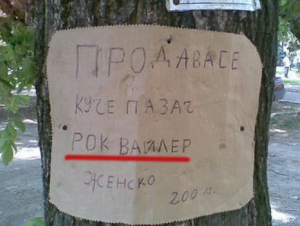 ПРОДАВАСЕ
КУЧЕ ПАЗАЧ
РОК ВАЙЛЕР
ЖЕНСКО
200 Л.